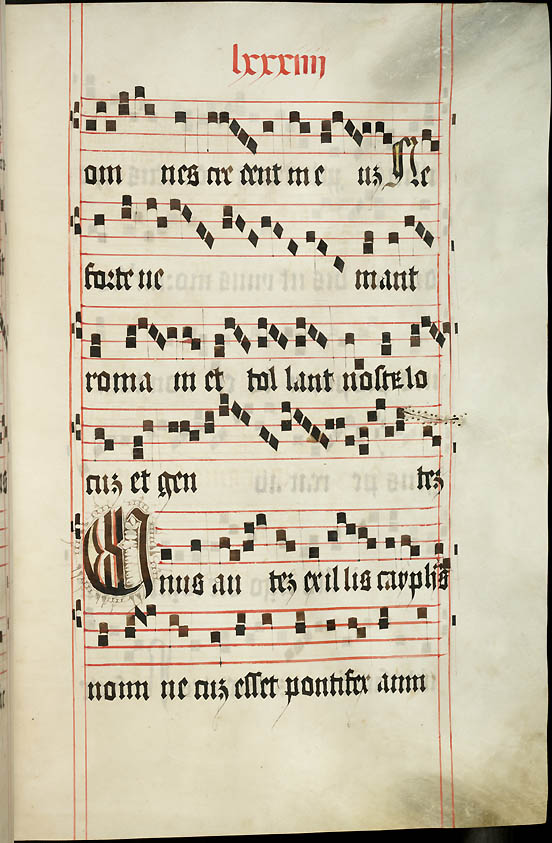 lxxxiiij
om nes cre dent in e uʒ Ne
forte ue niant
roma ni et tol lant nostꝛ lo
cuʒ et gen teʒ
Unus au teʒ ex il lis cayphas
nomi ne cuʒ esset pontifex anni